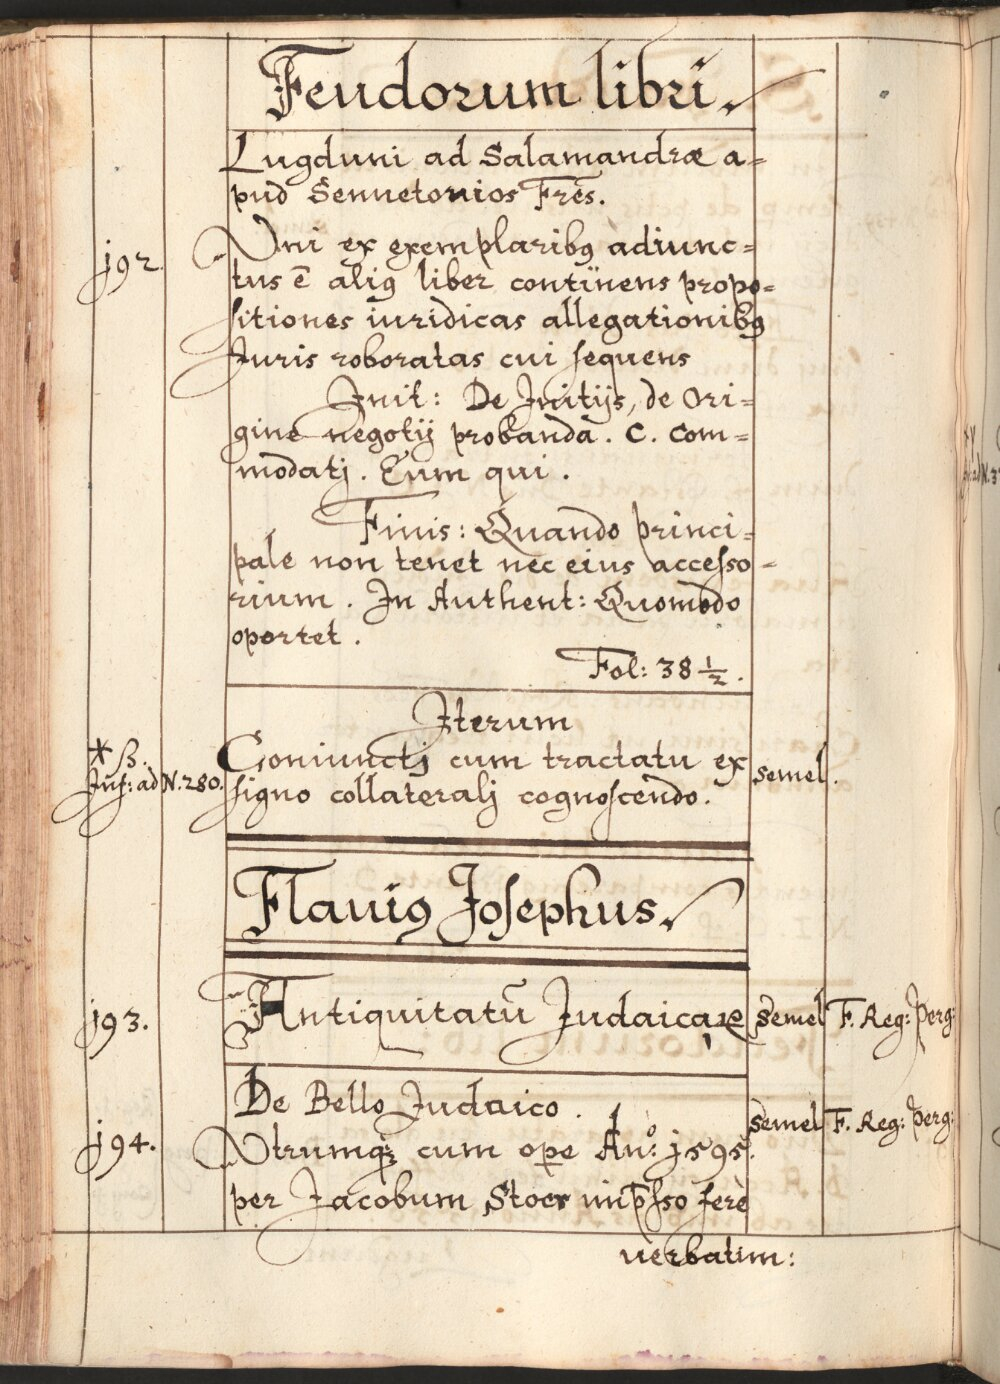 Feudorum libri.
Lugduni ad Salamandræ a=
pud Sennetonios Frēs.
192. Uni ex exemplaribꝰ adiunc=
tus ē aliꝰ liber continens propo=
sitiones iuridicas allegationibꝰ
Juris roboratas cui sequens
Init: De Initijs, de Ori=
gine negotij probanda. C. Com=
modatj. Eum qui.
Finis: Quando princi=
pale non tenet nec eius accesso=
rium. In Authent: Quomodo
oportet.
Fol: 38 1/2.
Iterum
* β. Coniunctj cum tractatu ex semel.
Inf: ad N. 280. signo collateralj cognoscendo.
Flauiꝰ Josephus.
193. Antiquitatū Judaicaꝝ semel F. Reg: Perg:
De Bello Judaico. semel F. Reg: Perg:
194. Utrumqꝫ cum ope An̊: 1595.
per Jacobum Stoer imp̄sso ferè
verbatim: